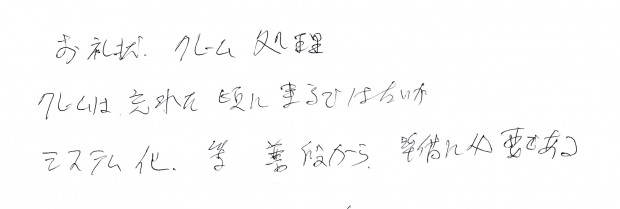 お礼状. クレーム 処理
クレームは 忘れた 頃に 来るではないか
システム化. 等 普段から. 準備に必要もある